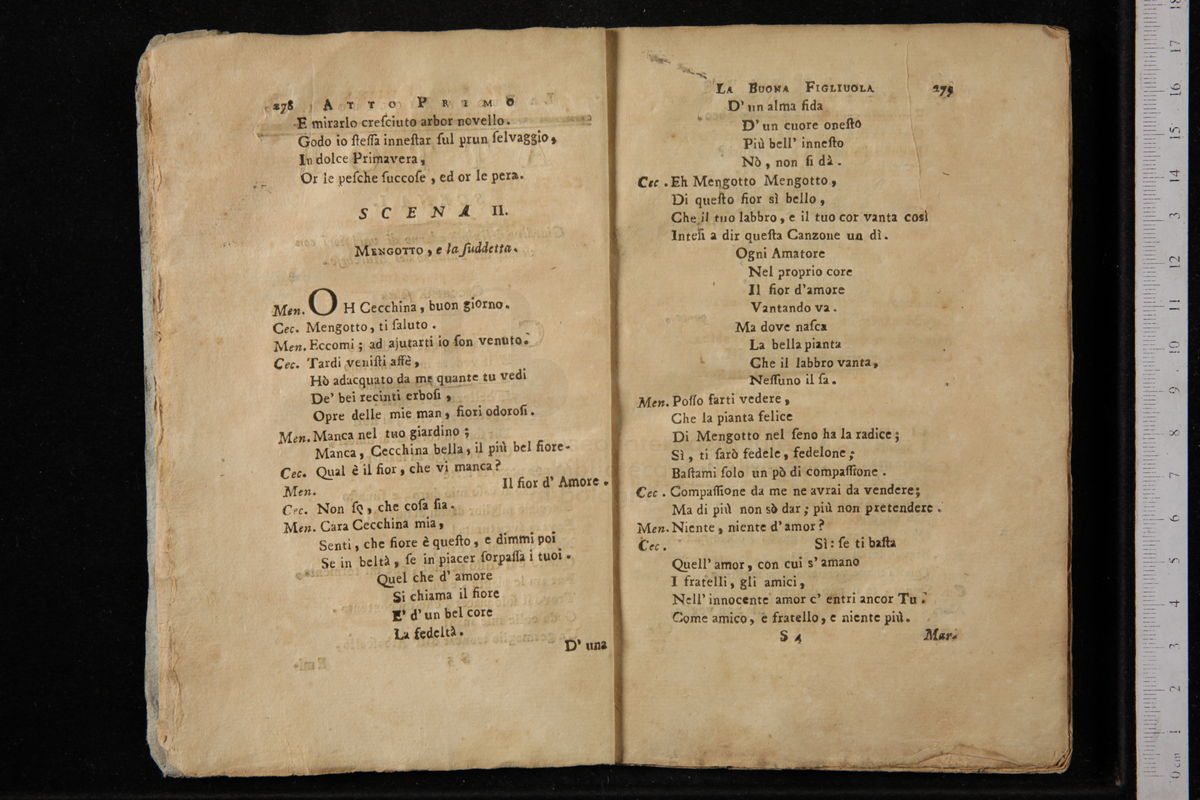 278 ATTO PRIMO
E mirarlo creſciuto arbor novello.
Godo io ſteſſa inneſtar ſul prun ſelvaggio,
In dolce Primavera,
Or le peſche ſuccoſe, ed or le pera.
SCENA II.
MENGOTTO, e la ſuddetta.
Men. OH Cecchina, buon giorno.
Cec. Mengotto, ti ſaluto.
Men. Eccomi; ad ajutarti io ſon venuto.
Cec. Tardi veniſti affè,
Hò adacquato da me quante tu vedi
De' bei recinti erboſi,
Opre delle mie man, fiori odoroſi.
Men. Manca nel tuo giardino;
Manca, Cecchina bella, il più bel fiore.
Cec. Qual è il fior, che vi manca?
Men. Il fior d' Amore.
Cec. Non ſo, che coſa ſia.
Men. Cara Cecchina mia,
Senti, che fiore è queſto, e dimmi poi
Se in beltà, ſe in piacer ſorpaſſa i tuoi.
Quel che d' amore
Si chiama il fiore
E' d' un bel core
La fedeltà.
D' una
LA BUONA FIGLIUOLA 279
D' un alma fida
D' un cuore oneſto
Più bell' inneſto
Nò, non ſi dà.
Cec. Eh Mengotto Mengotto,
Di queſto fior sì bello,
Che il tuo labbro, e il tuo cor vanta così
Inteſi a dir queſta Canzone un dì.
Ogni Amatore
Nel proprio core
Il fior d'amore
Vantando va.
Ma dove naſca
La bella pianta
Che il labbro vanta,
Neſſuno il ſa.
Men. Poſſo farti vedere,
Che la pianta felice
Di Mengotto nel ſeno ha la radice;
Sì, ti ſarò fedele, fedelone;
Baſtami ſolo un pò di compaſſione.
Cec. Compaſſione da me ne avrai da vendere;
Ma di più non sò dar; più non pretendere.
Men. Niente, niente d'amor?
Cec. Sì: ſe ti baſta
Quell' amor, con cui s' amano
I fratelli, gli amici,
Nell' innocente amor c' entri ancor Tu.
Come amico, e fratello, e niente più.
S 4 Mar.